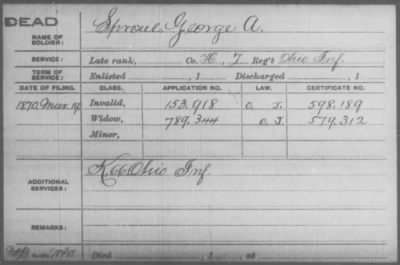 DEAD
NAME OF SOLDIER: Sproul, George A.
SERVICE: Late rank, Co. H, 7 Reg't Ohio Inf.
TERM OF SERVICE: Enlisted , 1 Discharged , 1
DATE OF FILING. CLASS. APPLICATION NO. LAW. CERTIFICATE NO.
1870, Mar. Invalid, 153,918 598.189
Widow, 789.344 579,312
Minor,
ADDITIONAL SERVICES: K 66 Ohio Inf.
REMARKS:
Died , 1 , at